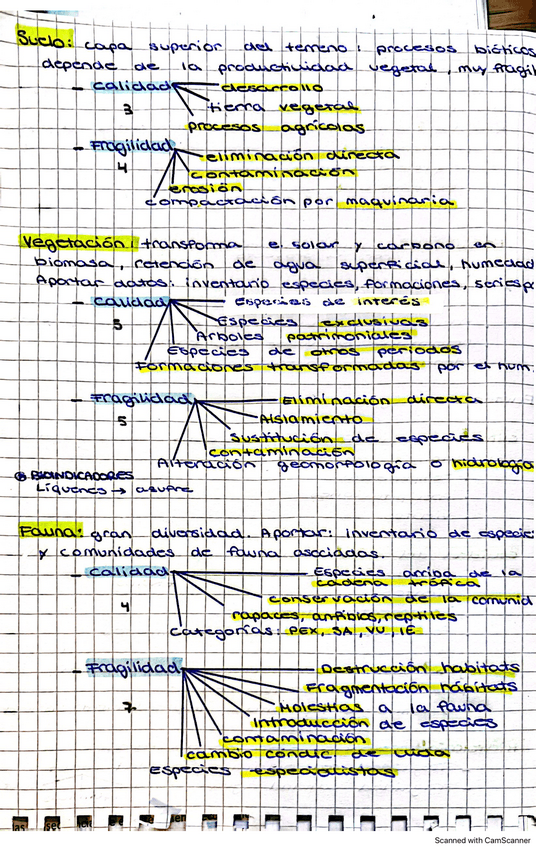 Suelo: capa superior del terreno: procesos bióticos
depende de la productividad vegetal, muy frágil
- Calidad
3
desarrollo
tierra vegetal
procesos agrícolas
- Fragilidad
4
eliminación directa
contaminación
erosión
compactación por maquinaria
Vegetación: transforma e. solar y carbono en
biomasa, retención de agua superficial, humedad
Aportar datos: inventario especies, formaciones, series
- Calidad
5
Especies de interés
Especies exclusivas
Árboles patrimoniales
Especies de otros periodos
Formaciones transformadas por el hum.
- Fragilidad
5
Eliminación directa
Aislamiento
Sustitución de especies
contaminación
Alteración geomorfología o hidrología
BIOINDICADORES
Líquenes → azufre
Fauna: gran diversidad. Aportar: inventario de especie
y comunidades de fauna asociadas.
- Calidad
4
Especies arriba de la
cadena trófica
conservación de la comunid
rapaces, anfibios, reptiles
Categorías: PEX, SA, VU, IE
- Fragilidad
7
Destrucción habitats
Fragmentación hábitats
Molestias a la fauna
Introducción de especies
contaminación
cambio condic de vida
especies especialistas
Scanned with CamScanner